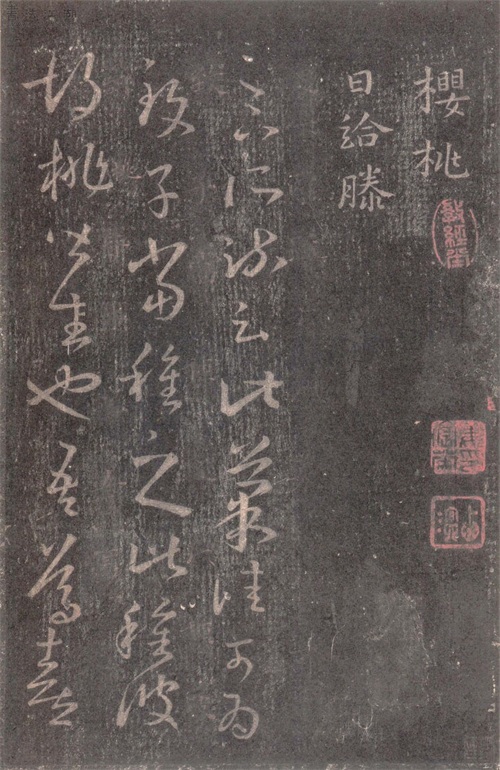 櫻桃
日給滕
足下所疏云此菓佳可為
致子當種之此種彼
胡桃皆生也吾篤喜